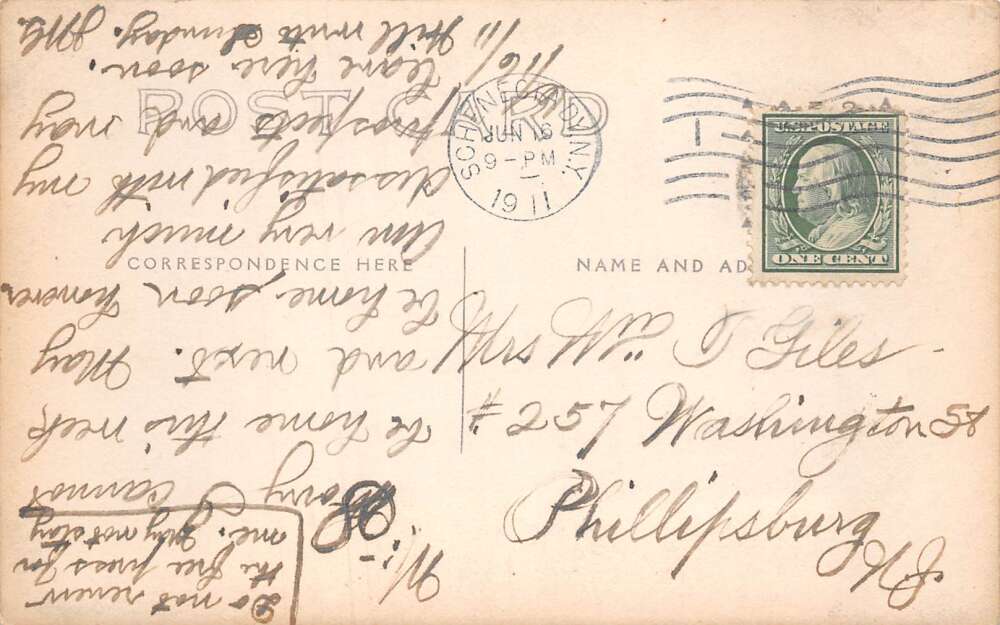 POST CARD
CORRESPONDENCE HERE
NAME AND AD
SCHENECTADY, N.Y.
JUN 16
9 - PM
1911
1
U.S. POSTAGE
ONE CENT
Mrs Wm T Giles
#257 Washington St
Phillipsburg
N.J.
M:-
Sorry I cannot
be home this week
and next. May
be home soon however
Am very much
dissatisfied with my
prospects and may
leave here soon.
Will write Sunday. JMG.
Do not renew
the free press for
me. May not stay